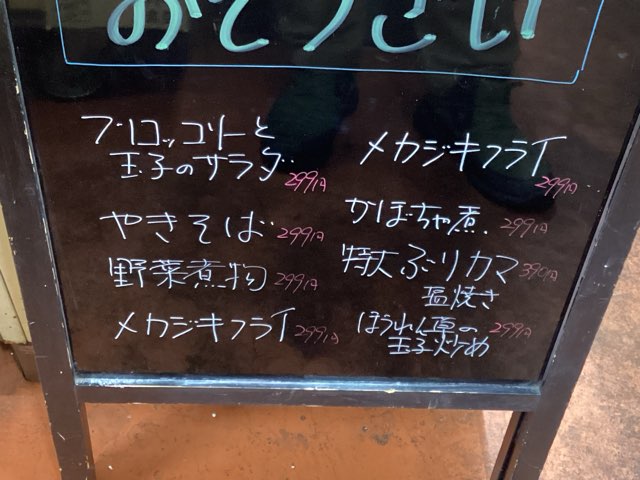 おそうざい
ブロッコリーと
玉子のサラダ 299円
やきそば 299円
野菜煮物 299円
メカジキフライ 299円
メカジキフライ
299円
かぼちゃ煮. 299円
特大ぶりカマ 390円
塩焼き
ほうれん草の 299円
玉子炒め